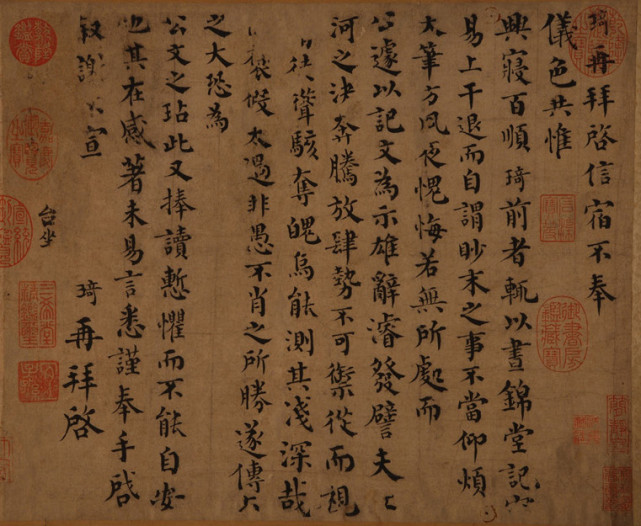 琦再拜啓信宿不奉
儀色共惟
興寢百順琦前者輒以晝錦堂記
易上干退而自謂眇末之事不當仰煩
大筆方夙夜愧悔若無所處而
公遽以記文為示雄辭濬發譬夫
河之決奔騰放肆勢不可禦從而視
徒聳駭奪魄烏能測其淺深哉
褒假太過非愚不肖之所勝遂傳
之大恐為
公文之玷此又捧讀慙懼而不能自安
也其在感著未易言悉謹奉手啟
叙謝不宣
琦再拜啓
台坐